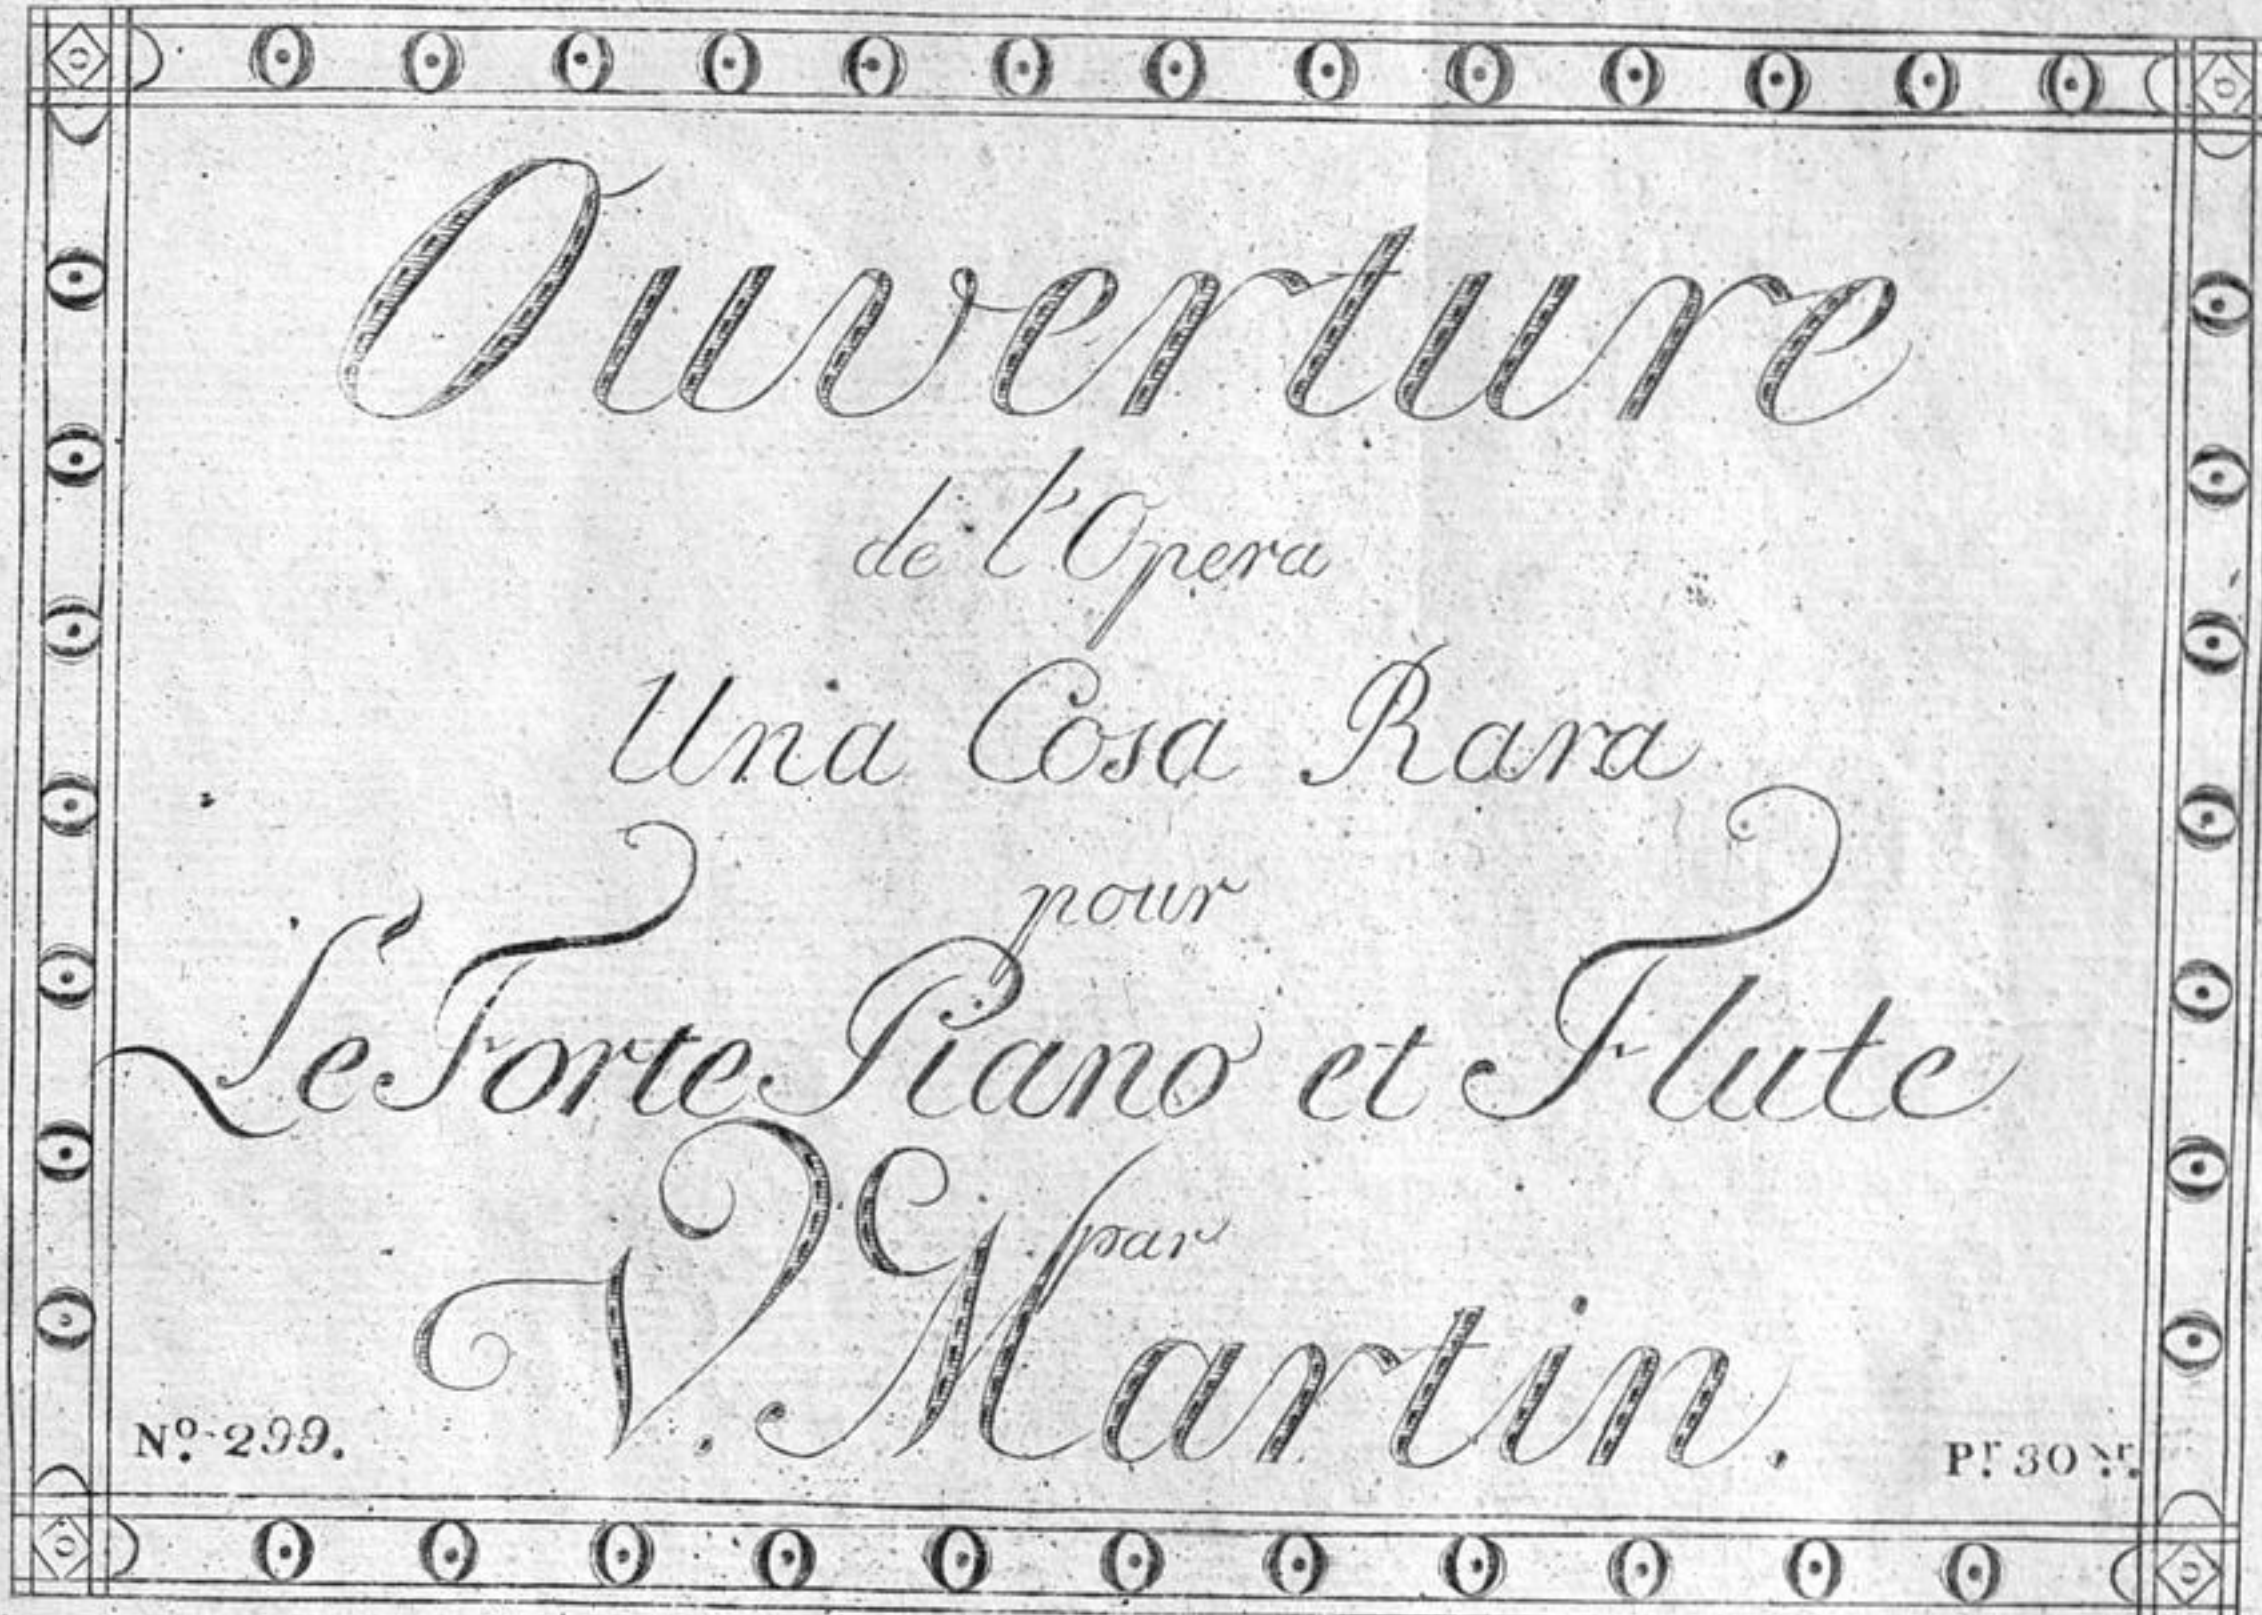 Ouverture
de l'Opera
Una Cosa Rara
pour
Le Forte Piano et Flute
par
V. Martin.
Nº. 299.
Pr. 30 Xr.